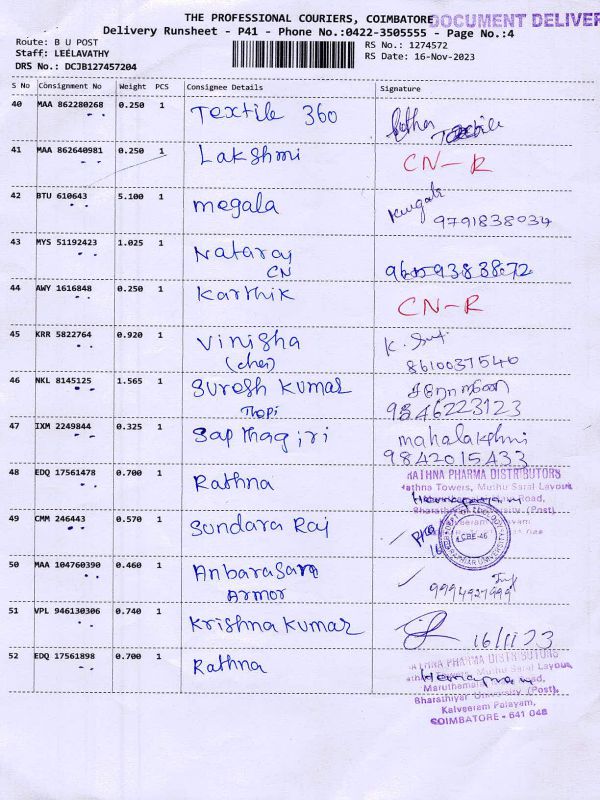 THE PROFESSIONAL COURIERS, COIMBATORE DOCUMENT DELIVER
Delivery Runsheet - P41 - Phone No.:0422-3505555 - Page No.:4
Route: B U POST
Staff: LEELAVATHY
DRS No.: DCJB127457204
RS No.: 1274572
RS Date: 16-Nov-2023
S No Consignment No Weight PCS Consignee Details Signature
40 MAA 862280268 0.250 1 Textile 360
41 MAA 862640981 0.250 1 Lakshmi CN-R
42 BTU 610643 5.100 1 megala 9791838034
43 MYS 51192423 1.025 1 Nataraj
CN
44 AWY 1616848 0.250 1 Karthik CN-R
45 KRR 5822764 0.920 1 Vinisha
(cher) 8610037540
46 NKL 8145125 1.565 1 Suresh Kumar
Thopi 9846223123
47 IXM 2249844 0.325 1 Sapthagiri mahalakshmi
9842015433
48 EDQ 17561478 0.700 1 Rathna RATHNA PHARMA DISTRIBUTORS
Rathna Towers, Muthu Saral Layout,
Road,
Bharathiyar University (Post),
Kalveeram Palayam
49 CMM 246443 0.570 1 Sundara Raj
LCBE-46
50 MAA 104760390 0.460 1 Anbarasan
Armor
51 VPL 946130306 0.740 1 Krishna Kumar 16/11/23
52 EDQ 17561898 0.700 1 Rathna RATHNA PHARMA DISTRIBUTORS
Saral Layout,
Road,
Bharathiyar University (Post),
Kalveeram Palayam,
COIMBATORE - 641 046